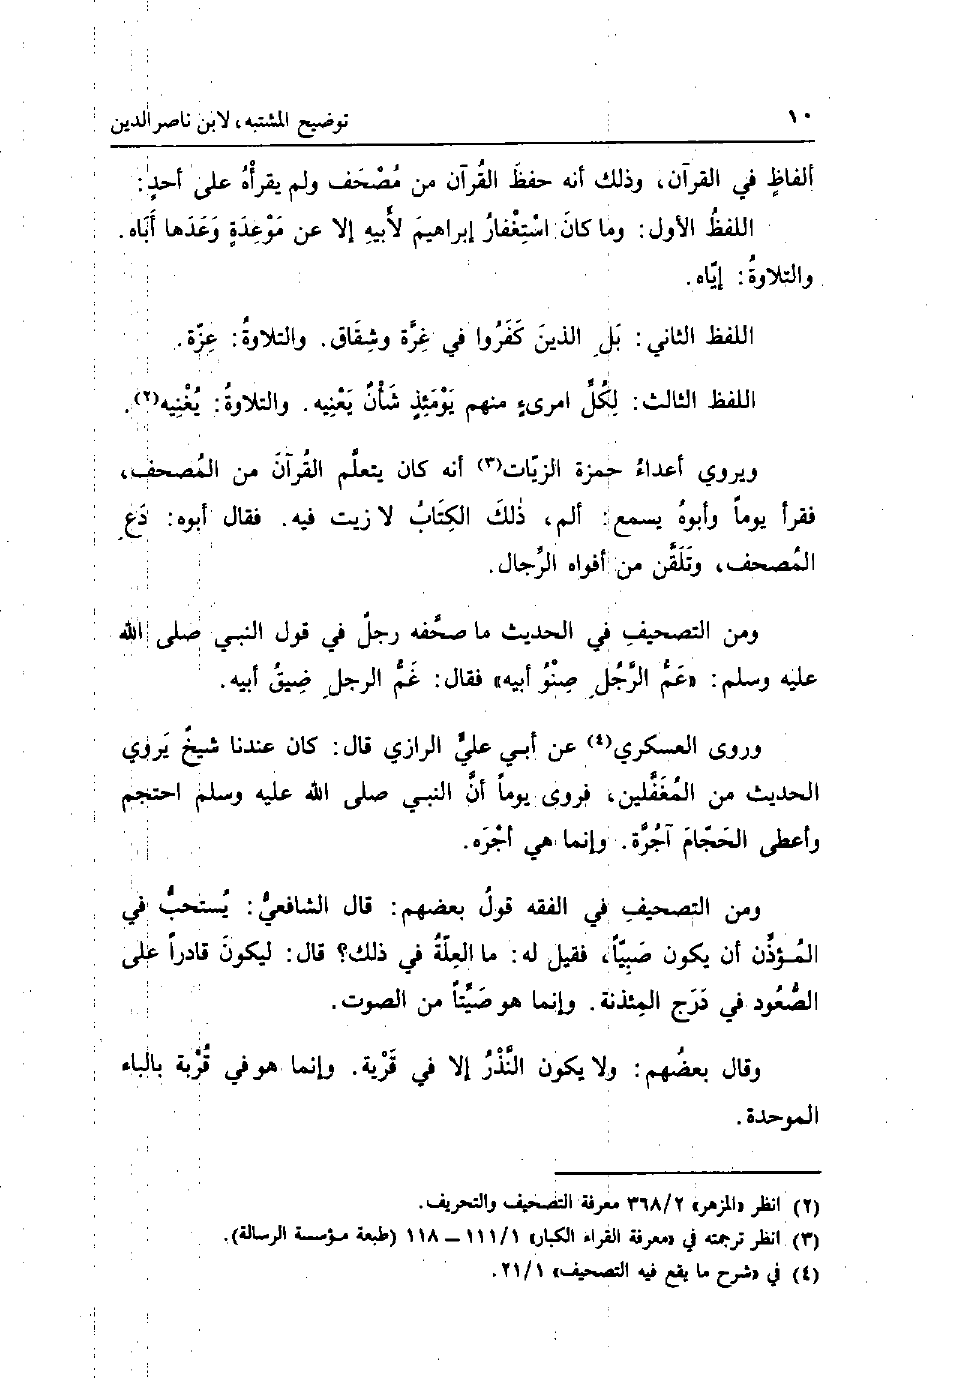 ١٠ توضيح المشتبه، لابن ناصر الدين
ألفاظٍ في القرآن، وذلك أنه حفظَ القُرآن من مُصْحَف ولم يقرأْهُ على أحدٍ:
اللفظُ الأول: وما كانَ اسْتِغْفارُ إبراهيمَ لأَبيهِ إلا عن مَوْعِدَةٍ وَعَدَها أَبَاه.
والتلاوةُ: إيّاه.
اللفظ الثاني: بَلِ الذينَ كَفَرُوا في غِرَّة وشِقَاق. والتلاوةُ: عِزّة.
اللفظ الثالث: لِكُلِّ امرىءٍ منهم يَوْمَئِذٍ شَأْنٌ يَعْنِيه. والتلاوةُ: يُغْنِيه(٢).
ويروي أعداءُ حمزة الزيّات(٣) أنه كان يتعلَّم القُرآنَ من المُصحف،
فقرأ يوماً وأبوهُ يسمع: ألم، ذٰلكَ الكِتَابُ لا زيت فيه. فقال أبوه: دَعِ
المُصحف، وتَلَقَّن من أفواه الرِّجال.
ومن التصحيفِ في الحديث ما صحَّفه رجلٌ في قول النبي صلى الله
عليه وسلم: «عَمُّ الرَّجُلِ صِنْوُ أبيه» فقال: غَمُّ الرجلِ ضِيقُ أبيه.
وروى العسكري(٤) عن أبي عليٍّ الرازي قال: كان عندنا شيخٌ يَروي
الحديث من المُغَفَّلين، فروى يوماً أنَّ النبي صلى الله عليه وسلم احتجم
وأعطى الحَجّامَ آجُرَّة. وإنما هي أجْرَه.
ومن التصحيفِ في الفقه قولُ بعضهم: قال الشافعيُّ: يُستحبُّ في
المُؤذِّن أن يكون صَبِيّاً، فقيل له: ما العِلّةُ في ذلك؟ قال: ليكونَ قادراً على
الصُّعُود في دَرَج المِئذنة. وإنما هو صَيِّتاً من الصوت.
وقال بعضُهم: ولا يكون النَّذْرُ إلا في قَرْية. وإنما هو في قُرْبة بالباء
الموحدة.
(٢) انظر «المزهر» ٣٦٨/٢ معرفة التصحيف والتحريف.
(٣) انظر ترجمته في «معرفة القراء الكبار» ١١١/١ ــ ١١٨ (طبعة مؤسسة الرسالة).
(٤) في «شرح ما يقع فيه التصحيف» ٢١/١.